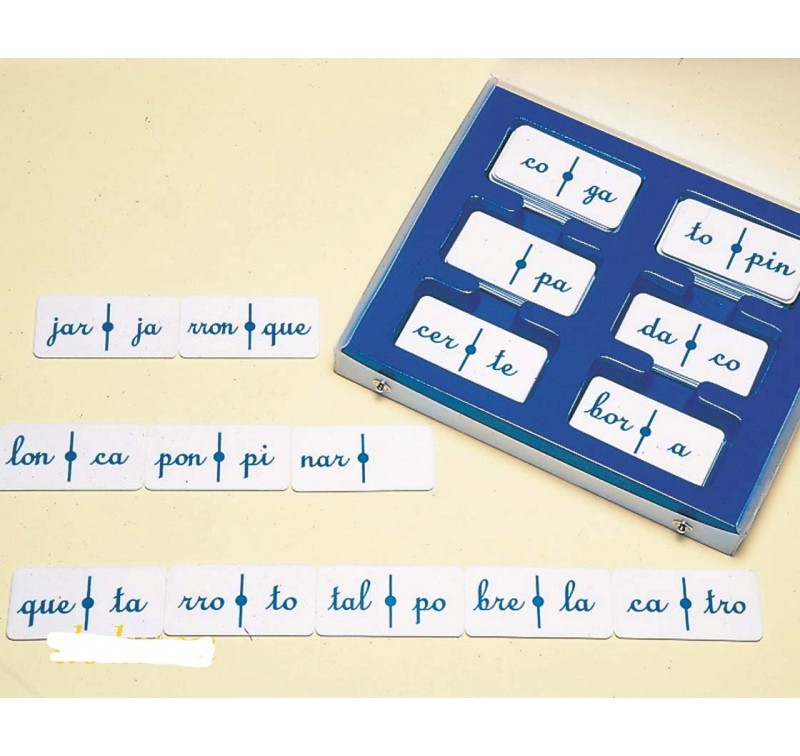 co ga
to pin
pa
cer te
da co
bor a
jar ja rron que
lon ca pon pi nar
que ta rro to tal po bre la ca tro